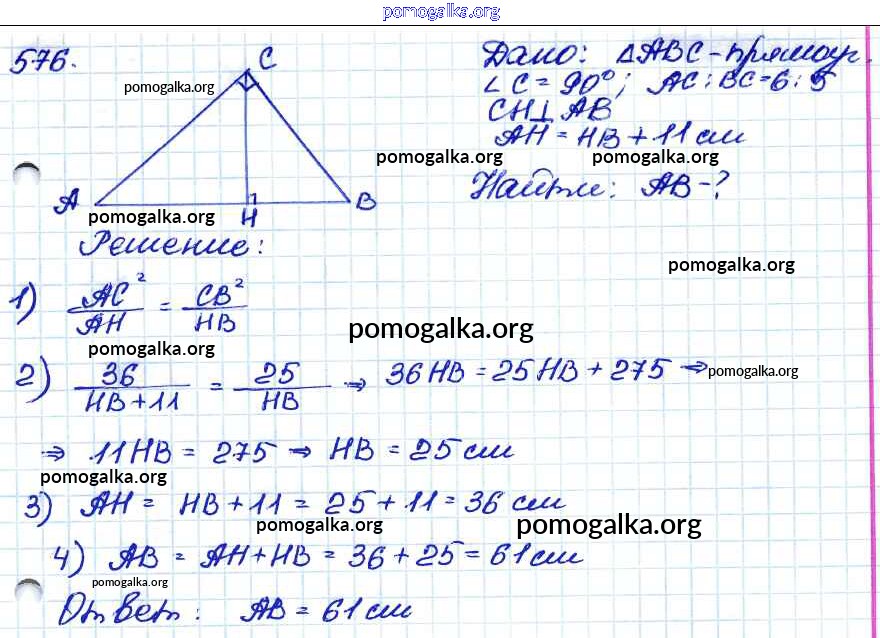 pomogalka.org
576.
C
pomogalka.org
A
H
B
pomogalka.org
Дано: △ABC - прямоуг.
∠C = 90°; AC : BC = 6 : 5
CH⊥AB
AH = HB + 11 см
pomogalka.org pomogalka.org
Найти: AB - ?
Решение:
pomogalka.org
1) AC²/AH = CB²/HB
pomogalka.org
pomogalka.org
2) 36/HB+11 = 25/HB ⇒ 36HB = 25HB + 275 ⇒
pomogalka.org
⇒ 11HB = 275 ⇒ HB = 25 см
pomogalka.org
3) AH = HB + 11 = 25 + 11 = 36 см
pomogalka.org pomogalka.org
4) AB = AH + HB = 36 + 25 = 61 см
pomogalka.org
Ответ: AB = 61 см